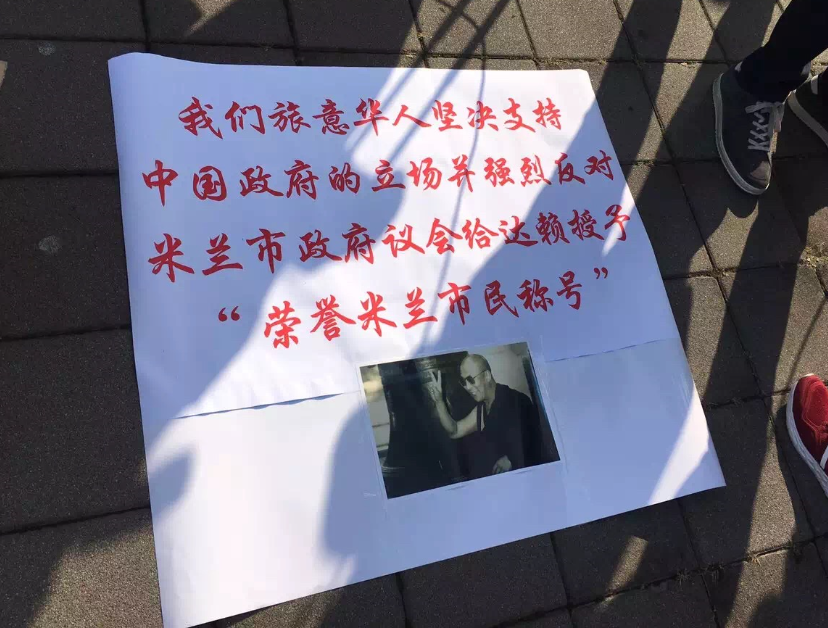 我们旅意华人坚决支持
中国政府的立场并强烈反对
米兰市政府议会给达赖授予
“荣誉米兰市民称号”